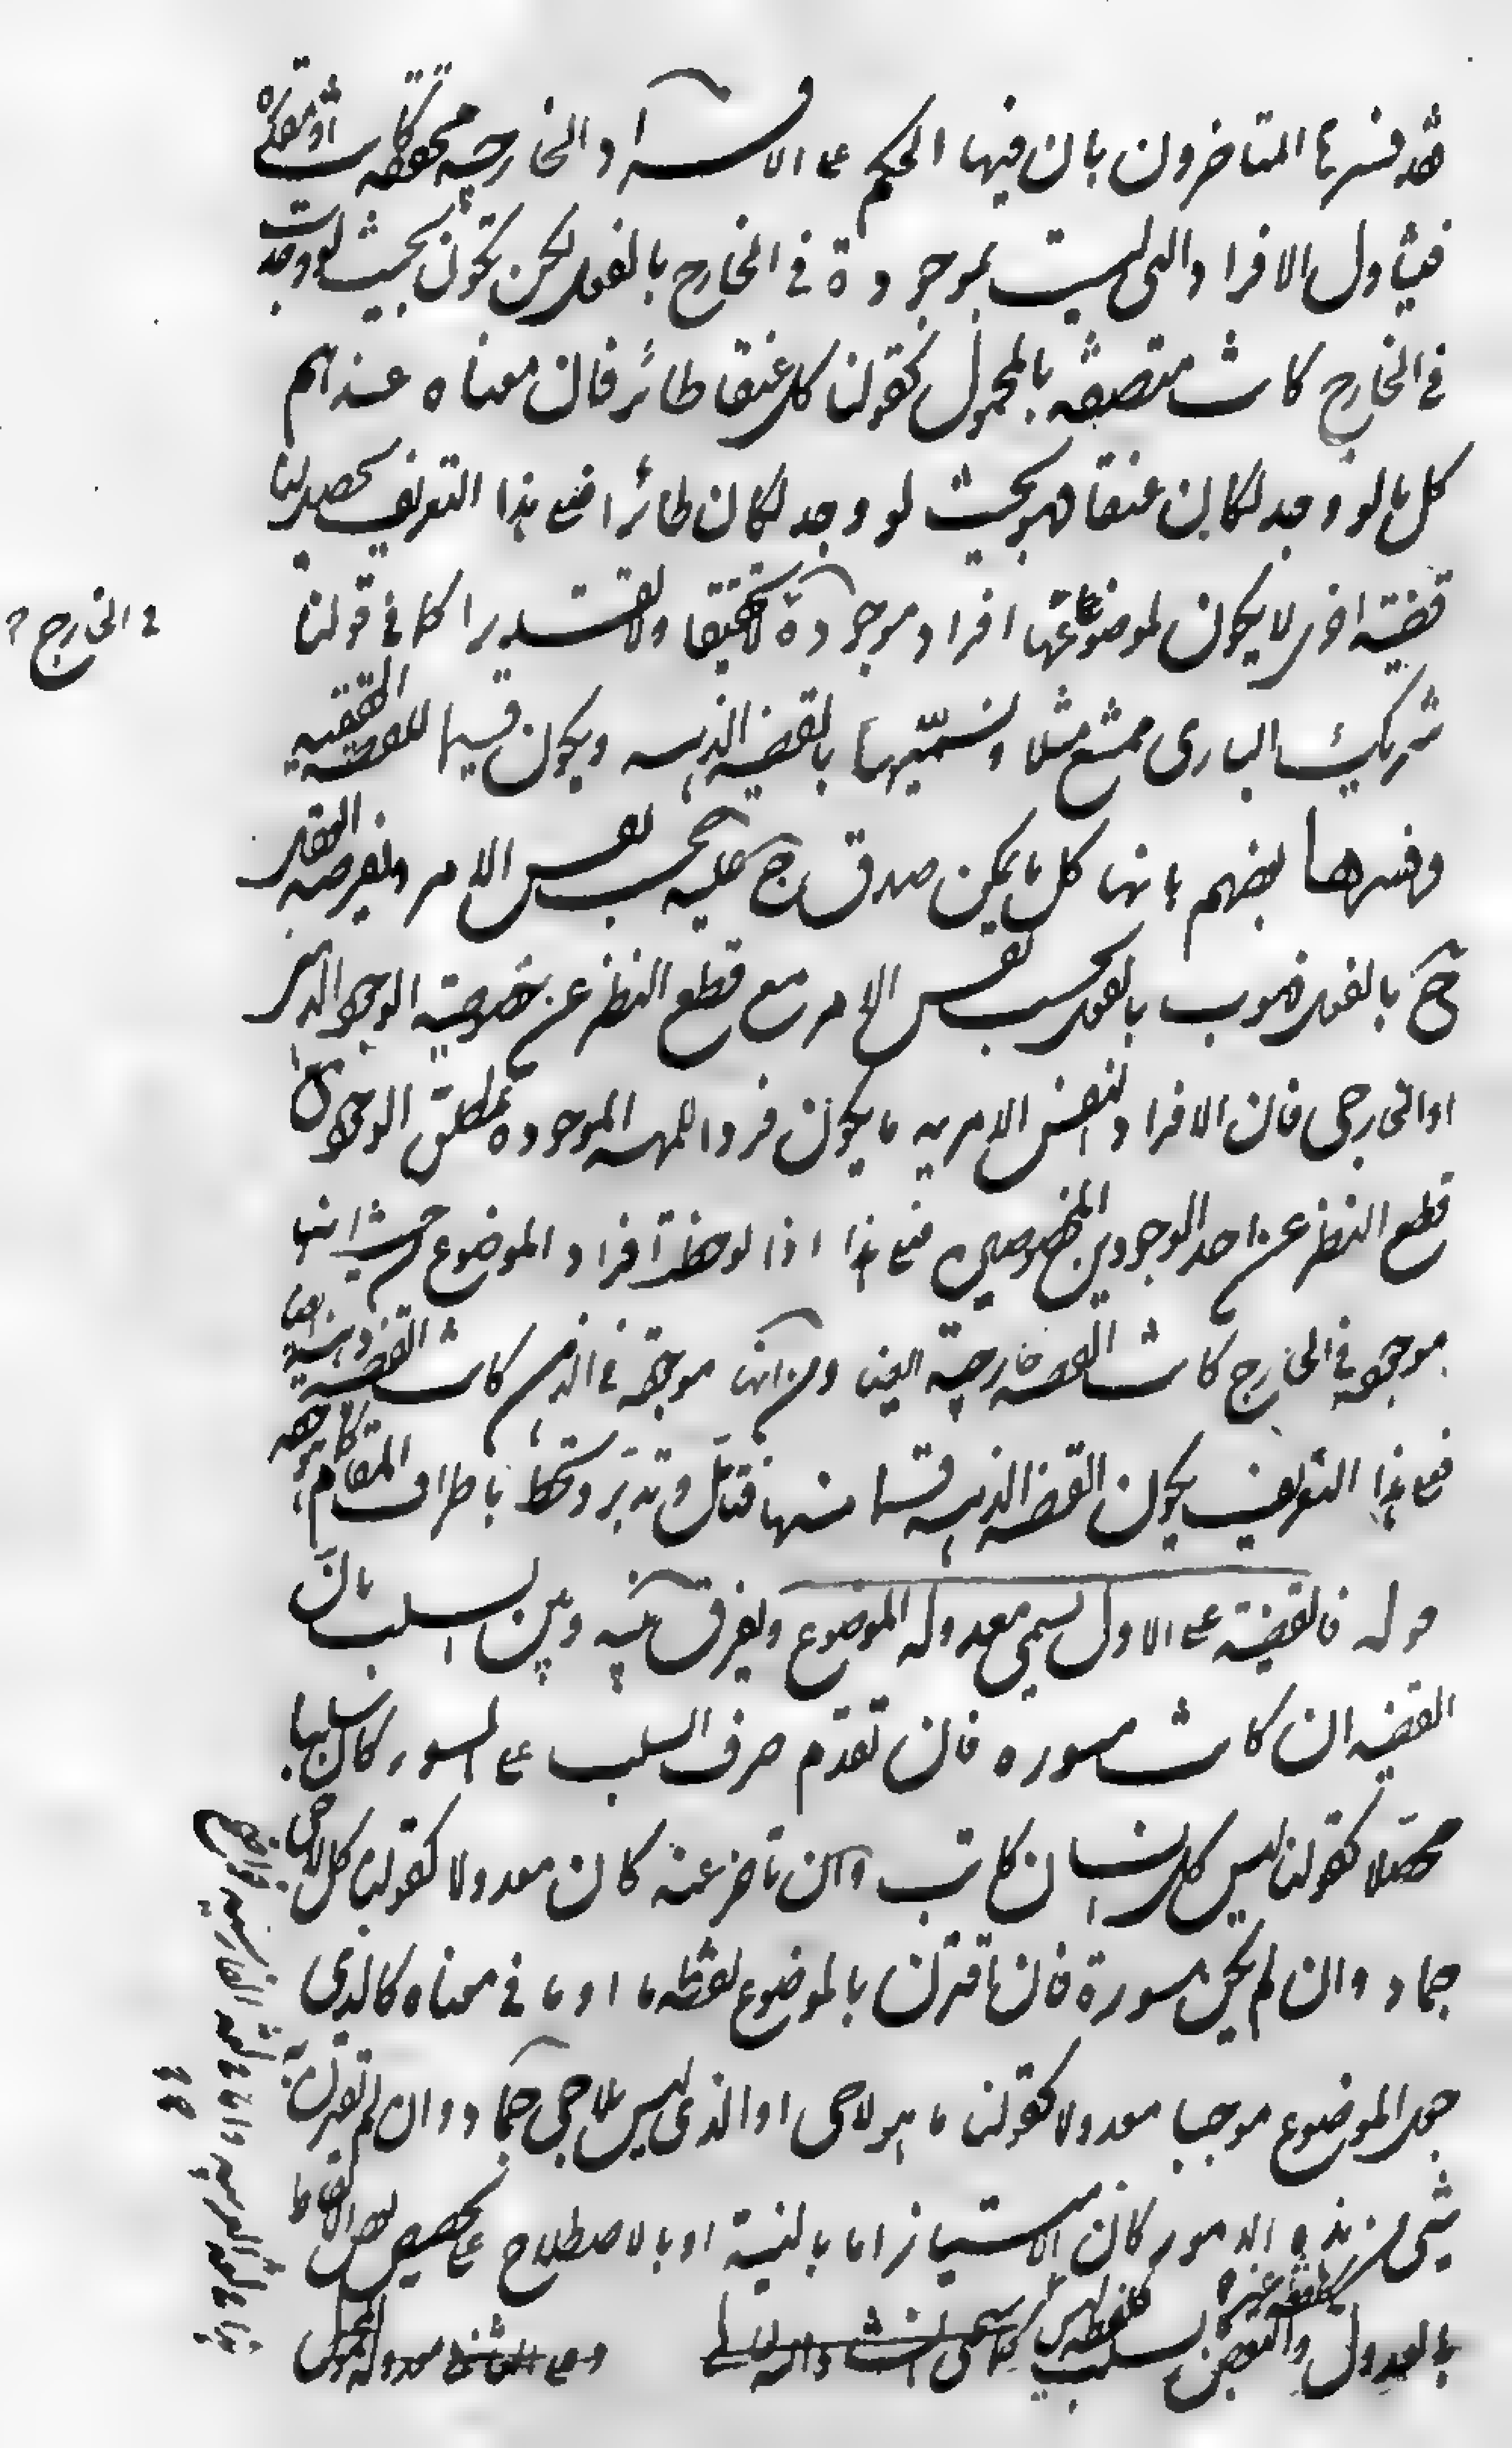 قد فسرها المتاخرون بان فيها الحكم على الافراد الخارجيه محققة كانت او مقدرة
فيتناول الافراد التى ليست بموجودة فى الخارج بالفعل لكن تكون بحيث لو وجدت
فى الخارج كانت متصفه بالمحمول كقولنا كل عنقا طائر فان معناه عندهم
كل ما لو وجد لكان عنقا فهو بحيث لو وجد لكان طائرا فعلى هذا التعريف يحصل لنا
قضية اخرى لا يكون لموضوعها افراد موجودة لا تحقيقا ولا تقديرا كما فى قولنا
فى الخارج
شريك البارى ممتنع مثلا ونسميها بالقضية الذهنيه ويكون قسيما للقضية الحقيقيه
وفسرها بعضهم بانها كل ما يمكن صدق ج عليه بحسب نفس الامر ويفرضه العقل
ج بالفعل فهو ب بالفعل بحسب نفس الامر مع قطع النظر عن خصوصية الوجود الذهنى
او الخارجى فان الافراد النفس الامريه ما يكون فردا للمهيه الموجودة بمطلق الوجود مع
قطع النظر عن احد الوجودين المخصوصين فعلى هذا اذا لوحظ افراد الموضوع من حيث انها
موجوده فى الخارج كانت القضيه خارجية ايضا ومن انها موجودة فى الذهن كانت القضيه ذهنية ايضا
فعلى هذا التعريف يكون القضيه الذهنيه قسما منها فتامل وتدبر وتحفظ باطراف المقام كما هو حقه
قوله فالقضية على الاول يسمى معدوله الموضوع ويفرق بينه وبين السلب بان
القضيه ان كانت مسوره فان تقدم حرف السلب على السور كان سلبيا
محصلا كقولنا ليس كل انسان كاتب وان تاخر عنه كان معدولا كقولنا كل لا حى
جماد وان لم يكن مسورة فان اقترن بالموضوع لفظه ما او ما فى معناه كالذى
جعل الموضوع موجبا معدولا كقولنا ما هو لا حى او الذى ليس بلا حى جماد وان لم تقترن به
شىء من هذه الامور كان الامتياز اما بالنية او بالاصطلاح على تخصيص بعض الالفاظ
بالعدول كلفظه غير والبعض بالسلب كلفظه ليس